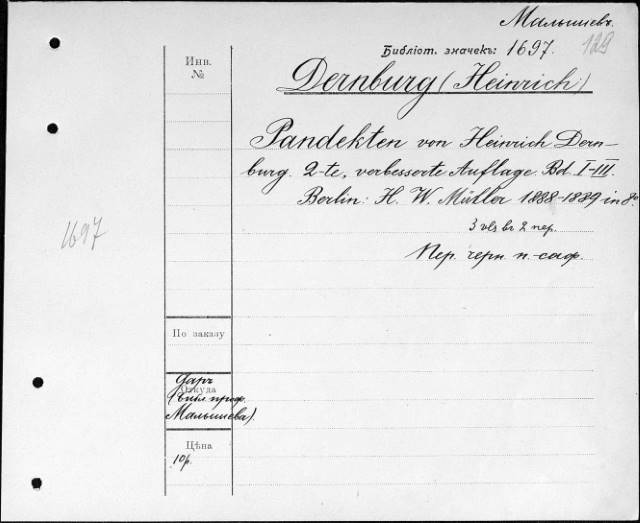 Малышевъ.
Библіот. значекъ: 1697. 129
Инв.
№
Dernburg (Heinrich)
Pandekten von Heinrich Dern-
burg. 2-te, verbesserte Auflage. Bd. I-III.
Berlin: H. W. Müller 1888-1889 in 8º
3 vls br 2 пер.
1697
Пер. черн. п.-саф.
По заказу
Даръ
Откуда
(библ. проф.
Малышева).
Цѣна
10р.